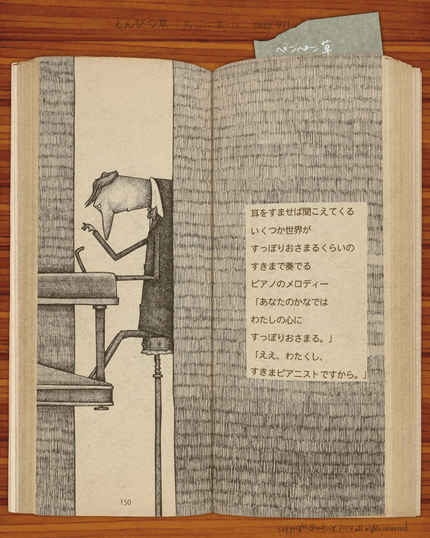 page 021
ペンペン草
耳をすませば聞こえてくる
いくつか世界が
すっぽりおさまるくらいの
すきまで奏でる
ピアノのメロディー
「あなたのかなでは
わたしの心に
すっぽりおさまる。」
「ええ、わたくし、
すきまピアニストですから。」
150